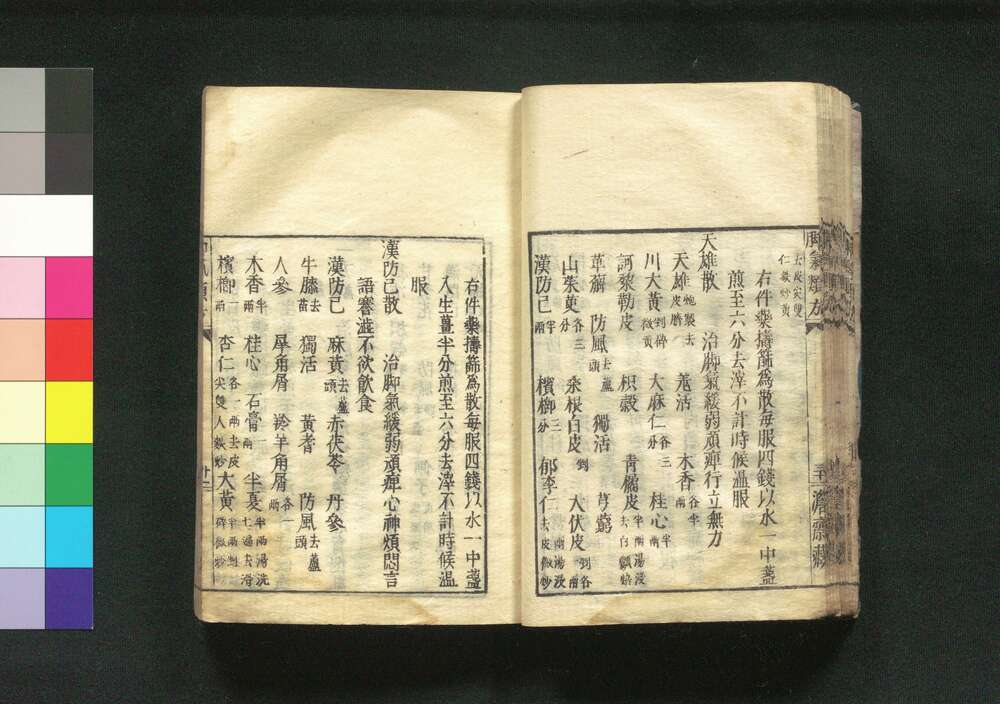 去皮尖雙仁麩炒黃
右件藥擣篩為散每服四錢以水一中盞
煎至六分去滓不計時候溫服
天雄散　治脚氣緩弱頑痺行立無力
天雄炮裂去皮臍　羗活　木香各半兩
川大黃剉碎微黃　大麻仁各三分　桂心半兩
訶梨勒皮　枳殼　青橘皮半兩湯浸去白瓤焙
萆薢　防風去蘆頭　獨活　芎藭
山茱萸各三分　桑根白皮剉　大伏皮剉各
漢防己半兩　檳榔三分　郁李仁半兩湯浸去皮微炒
右件藥擣篩為散每服四錢以水一中盞
入生薑半分煎至六分去滓不計時候溫
服
漢防己散　治脚氣緩弱頑痺心神煩悶言
語謇澁不欲飲食
漢防己　麻黃去蘆頭　赤茯苓　丹參
牛膝去苗　獨活　黃耆　防風去蘆頭
人參　犀角屑　羚羊角屑各一兩
木香半兩　桂心　石膏兩　半夏半兩湯洗七遍去滑
檳榔一兩　杏仁各一兩去皮尖雙人麩炒　大黃半兩剉碎微炒